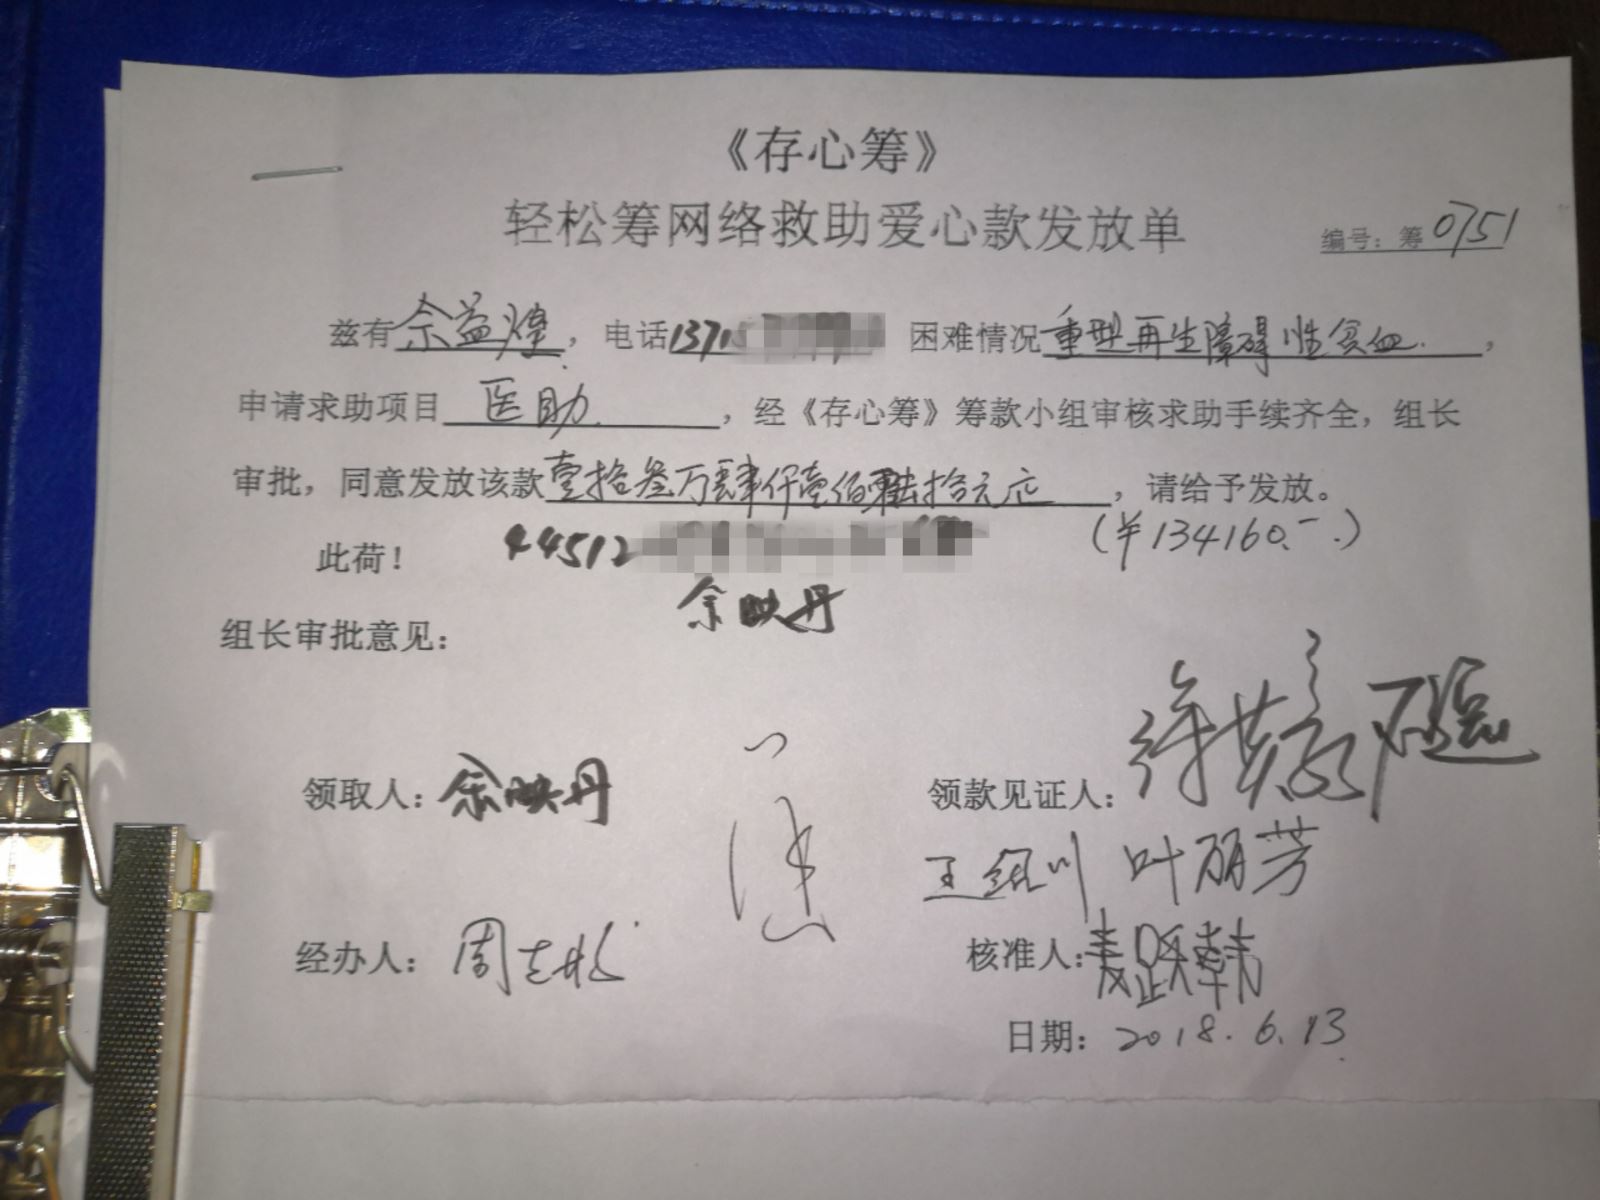 《存心筹》
轻松筹网络救助爱心款发放单
编号：筹0751
兹有佘益煌，电话13715 困难情况重型再生障碍性贫血，
申请求助项目医助，经《存心筹》筹款小组审核求助手续齐全，组长
审批，同意发放该款壹拾叁万肆仟壹佰陆拾元正，请给予发放。
(￥134160.-.)
此荷！ 44512
佘映丹
组长审批意见：
领取人：佘映丹 领款见证人：
叶丽芳
经办人：周 核准人：
日期：2018.6.13